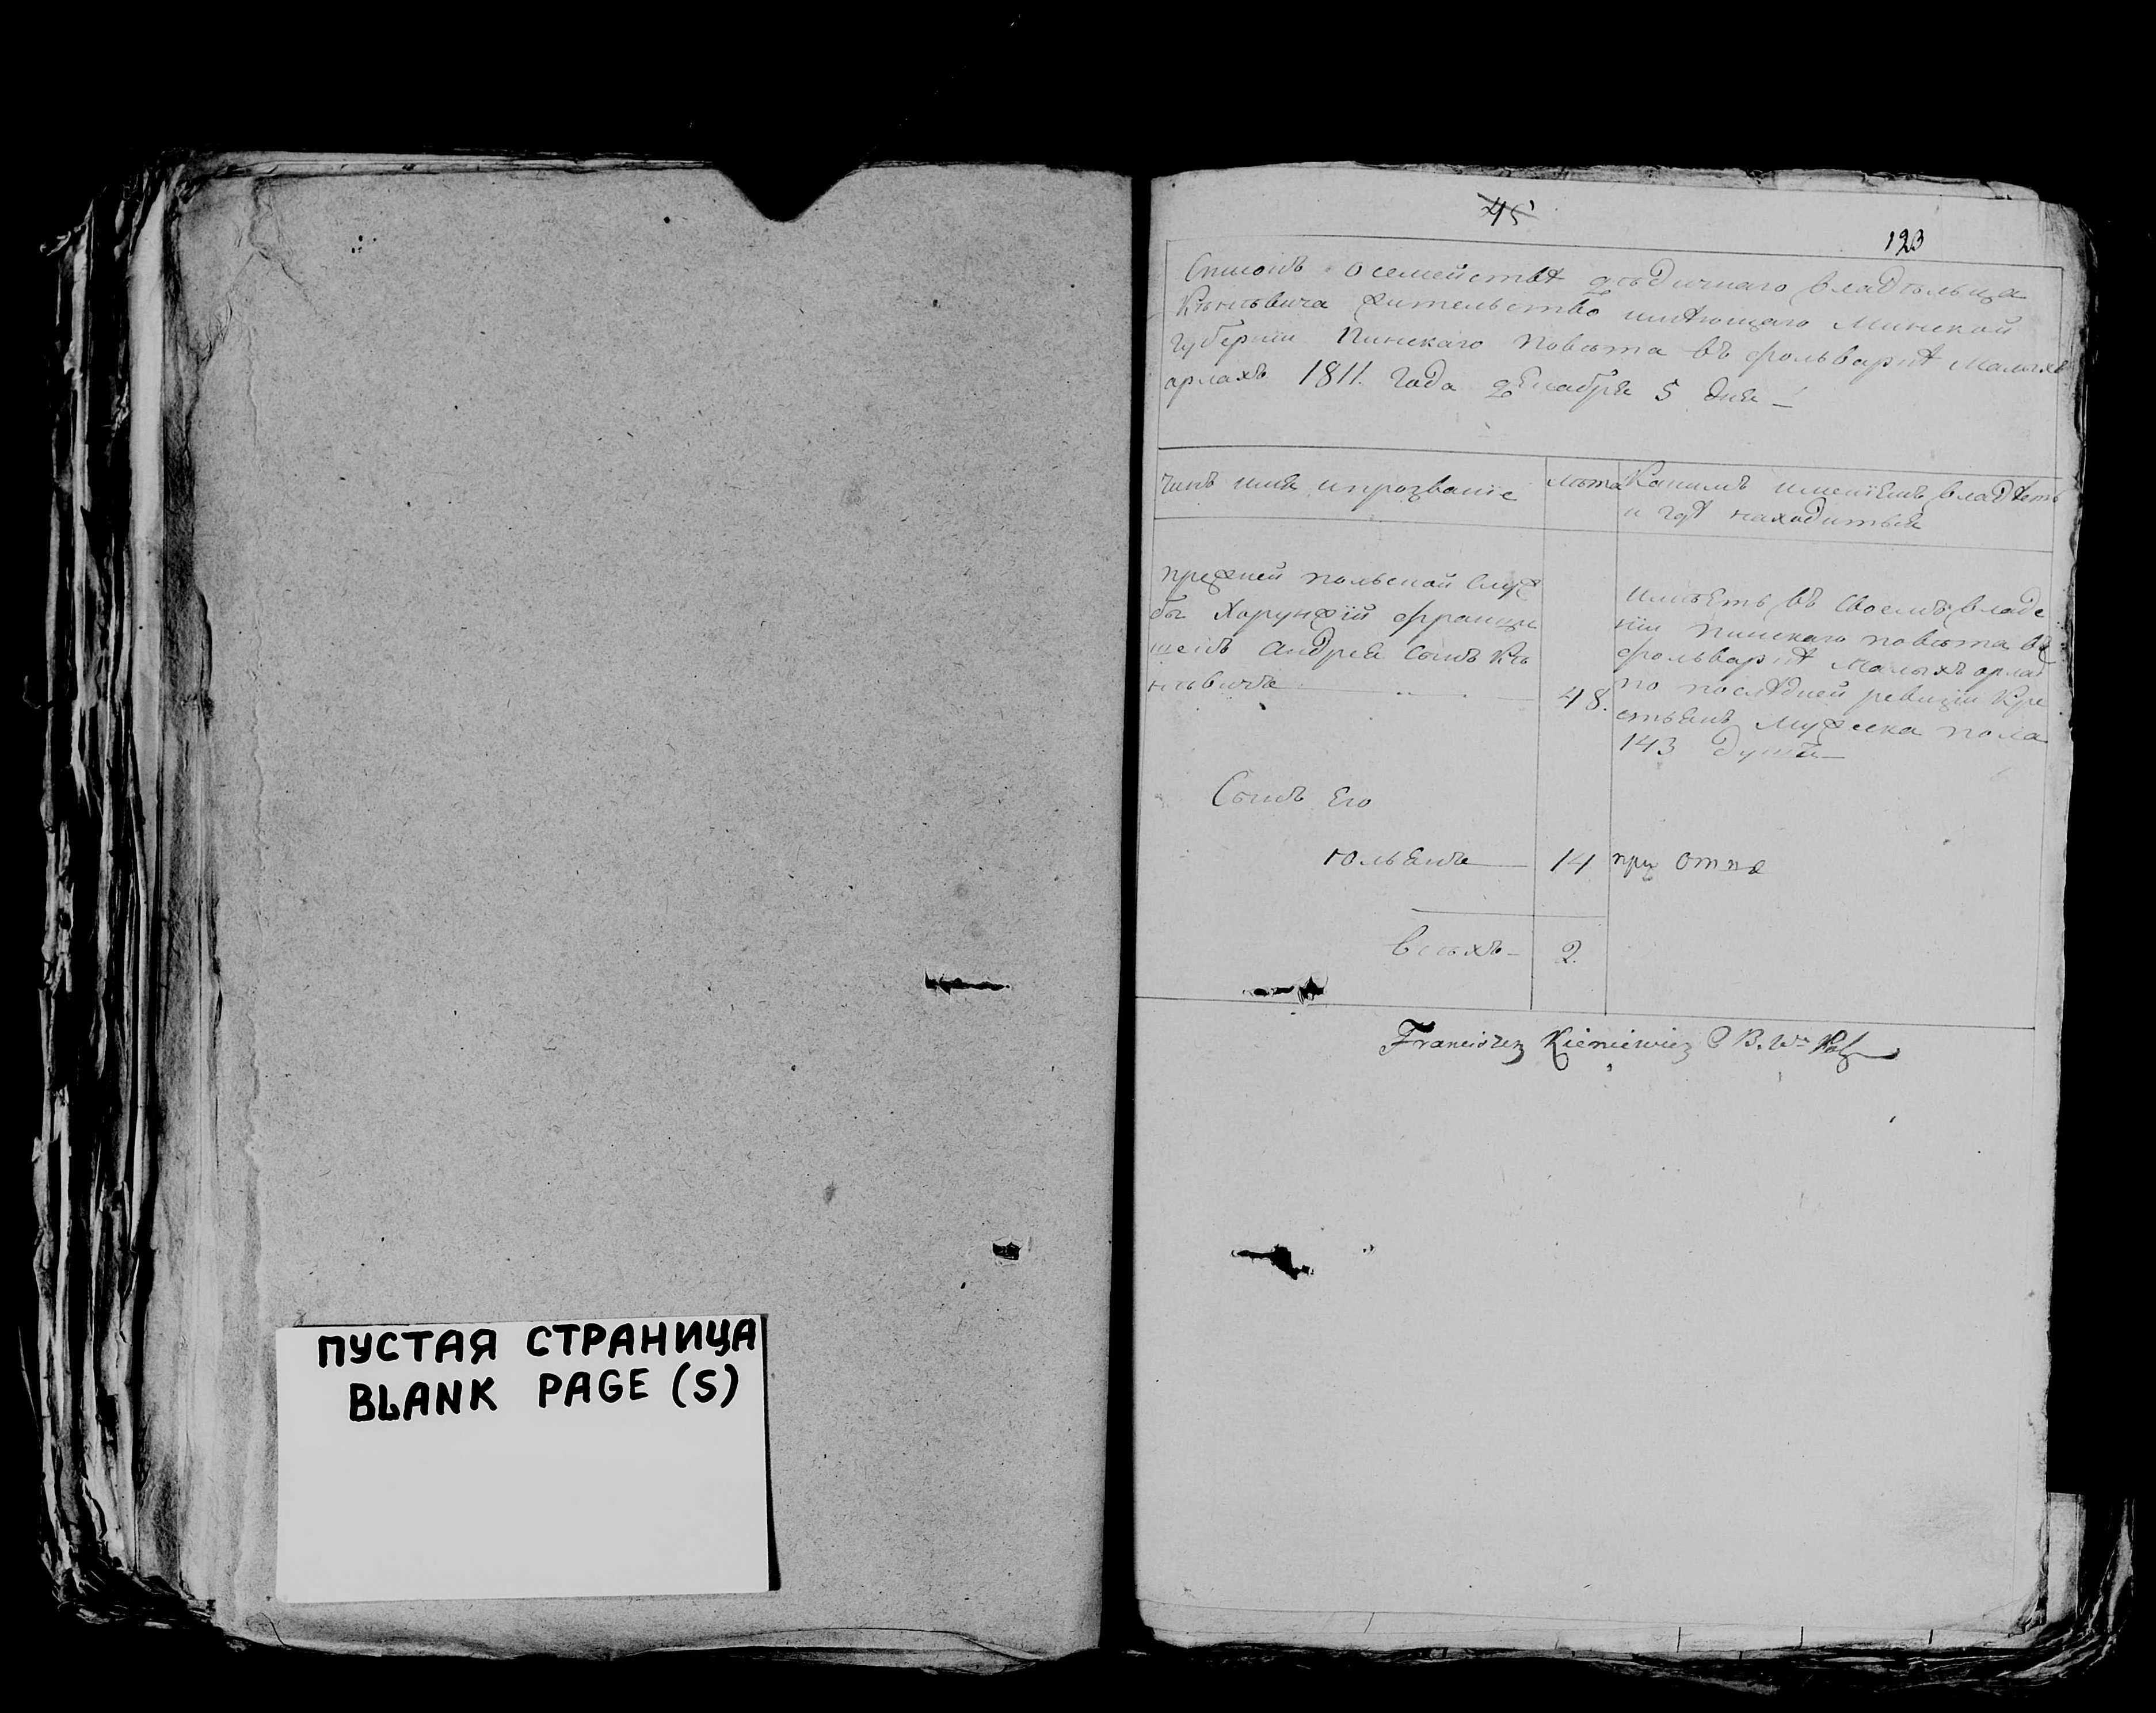 ПУСТАЯ СТРАНИЦА
BLANK PAGE (S)
45
123
Списокъ о семействѣ дѣдичнаго владѣльца
Кѣнѣвича жительство имѣющаго Минской
губерніи Пинскаго Повѣта въ фольваркѣ Малыхъ
орлахъ 1811. года декабря 5 дня —
Чинъ имя и прозваніе
лѣта
Какимъ имѣніемъ владѣетъ
и гдѣ находиться
прежней польской служ
бы Хорунжій Франци
шекъ Андрея Сынъ Кѣ
нѣвичъ
48.
имѣетъ въ своемъ владе
ніи пинскаго повѣта въ
фольваркѣ Малыхъ орлах
по послѣдней ревизіи Кре
стьянъ мужеска пола
143 души —
Сынъ Его
юльянъ
14
при отцѣ
всѣхъ —
2.
Franciszek Kieniewicz B. W